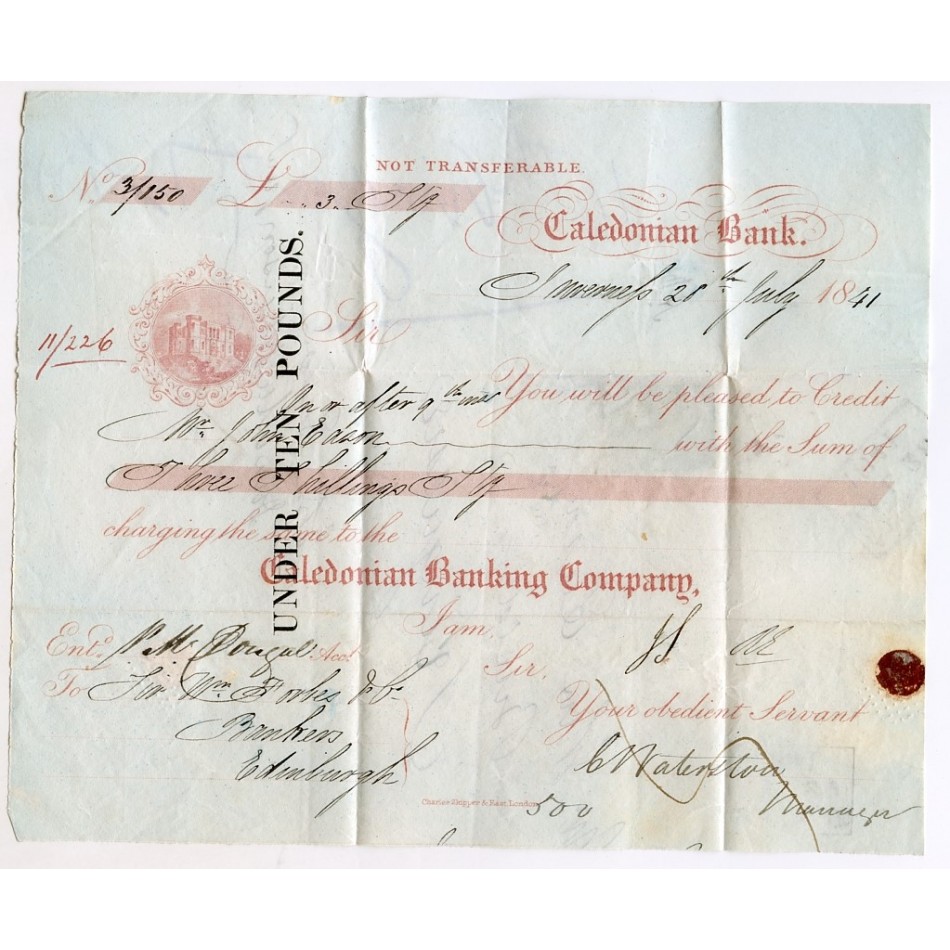 NOT TRANSFERABLE.
No. 3/150 £ .. 3 .. Stg
Caledonian Bank.
Inverness 20th July 1841
11/226
Sir
UNDER TEN POUNDS.
On or after 9th You will be pleased to Credit
Mr. John Edson with the Sum of
Three Shillings Stg
charging the same to the
Caledonian Banking Company,
I am,
Entd. P. McDougal Acct.
Sir,
To Sir Wm Forbes & Co
Your obedient Servant
Bankers
C Waterston
Edinburgh
Manager
Charles Skipper & East, London
500